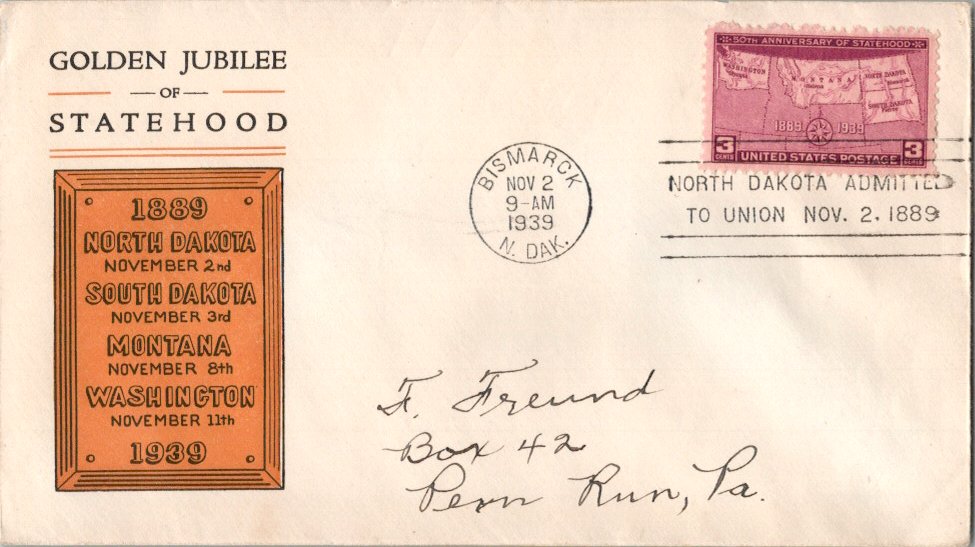 GOLDEN JUBILEE
OF
STATEHOOD
1889
NORTH DAKOTA
NOVEMBER 2nd
SOUTH DAKOTA
NOVEMBER 3rd
MONTANA
NOVEMBER 8th
WASHINGTON
NOVEMBER 11th
1939
BISMARCK
NOV 2
9-AM
1939
N. DAK.
50TH ANNIVERSARY OF STATEHOOD
WASHINGTON
MONTANA
NORTH DAKOTA
SOUTH DAKOTA
1889 1939
3 CENTS UNITED STATES POSTAGE 3 CENTS
NORTH DAKOTA ADMITTED
TO UNION NOV. 2, 1889
F. Freund
Box 42
Penn Run, Pa.